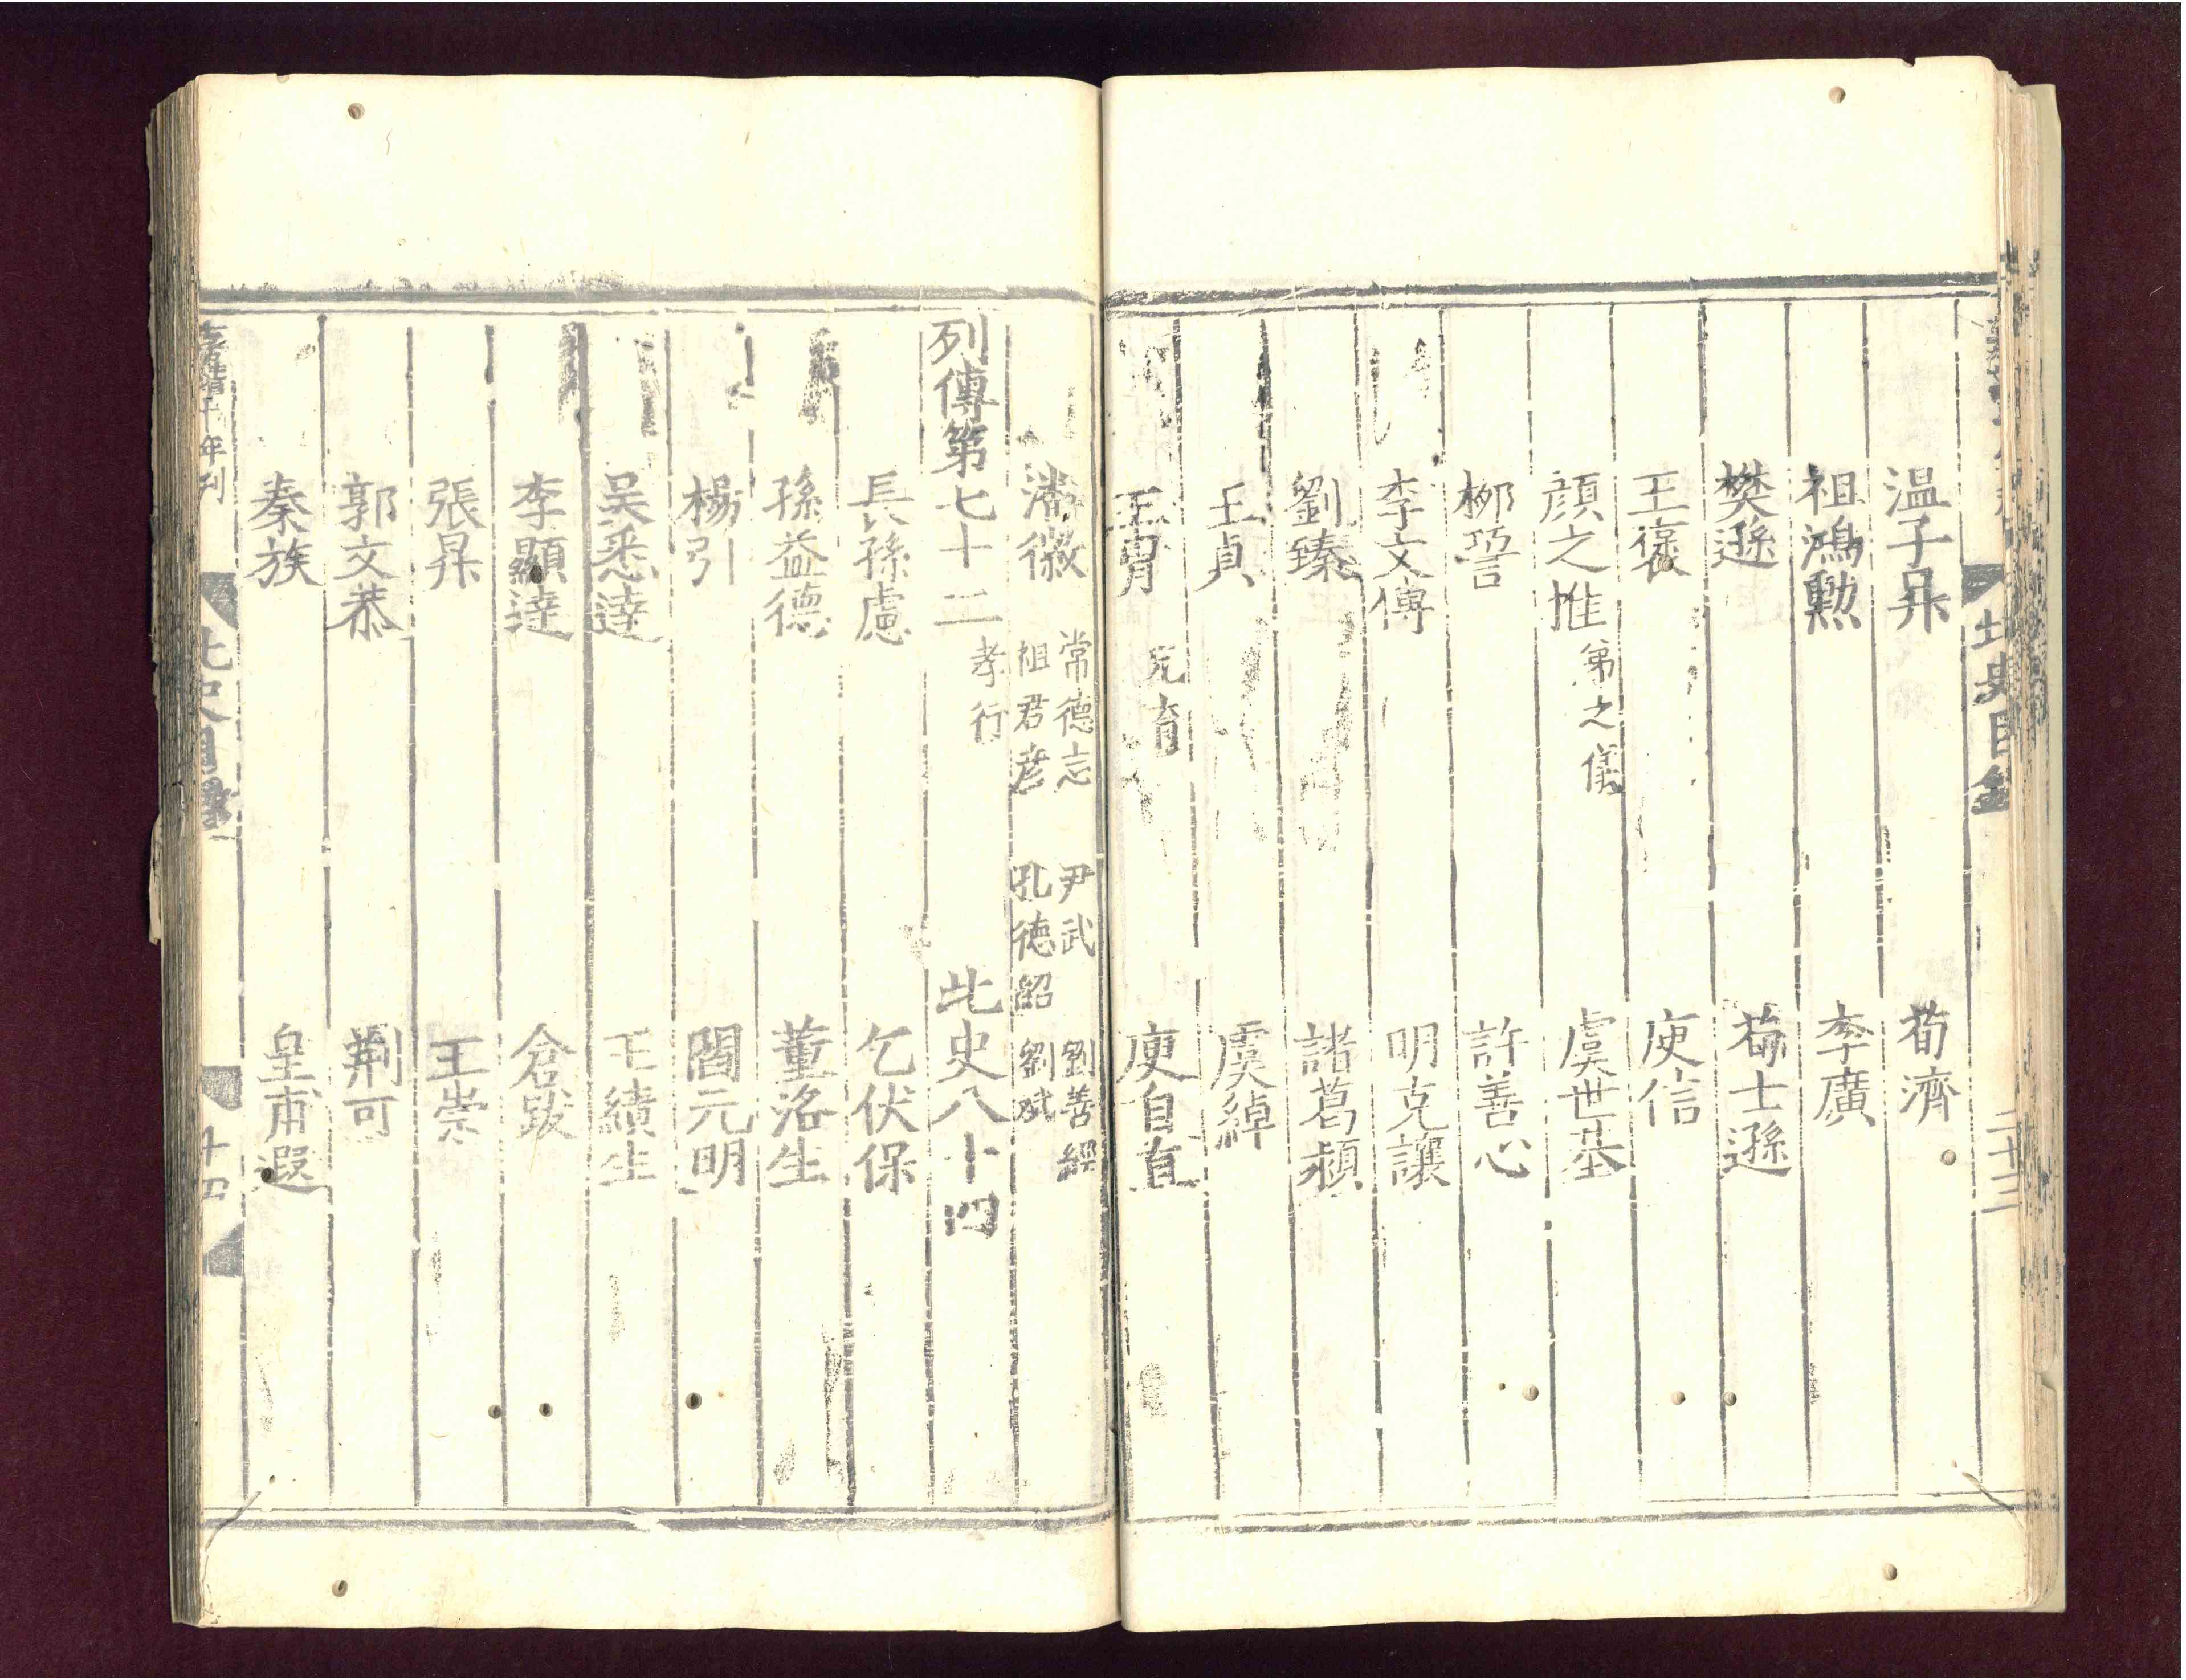 北史目錄 二十三
温子昇 荀濟
祖鴻勲 李廣
樊遜 荀士遜
王襃 庾信
顔之推 弟之儀 虞世基
栁䛒 許善心
李文博 明克讓
劉臻 諸葛潁
王貞 虞綽
王胄 兄育 庾自直
潘徽 常德志 尹武 劉善經
祖君彦 孔德紹 劉斌
列傳第七十二 孝行 北史八十四
長孫慮 乞伏保
孫益德 董洛生
楊引 閻元明
吴悉逹 王續生
李顯逹 倉跋
張昇 王崇
郭文恭 荆可
秦族 皇甫遐
嘉靖十年刊 北史目錄 廿四